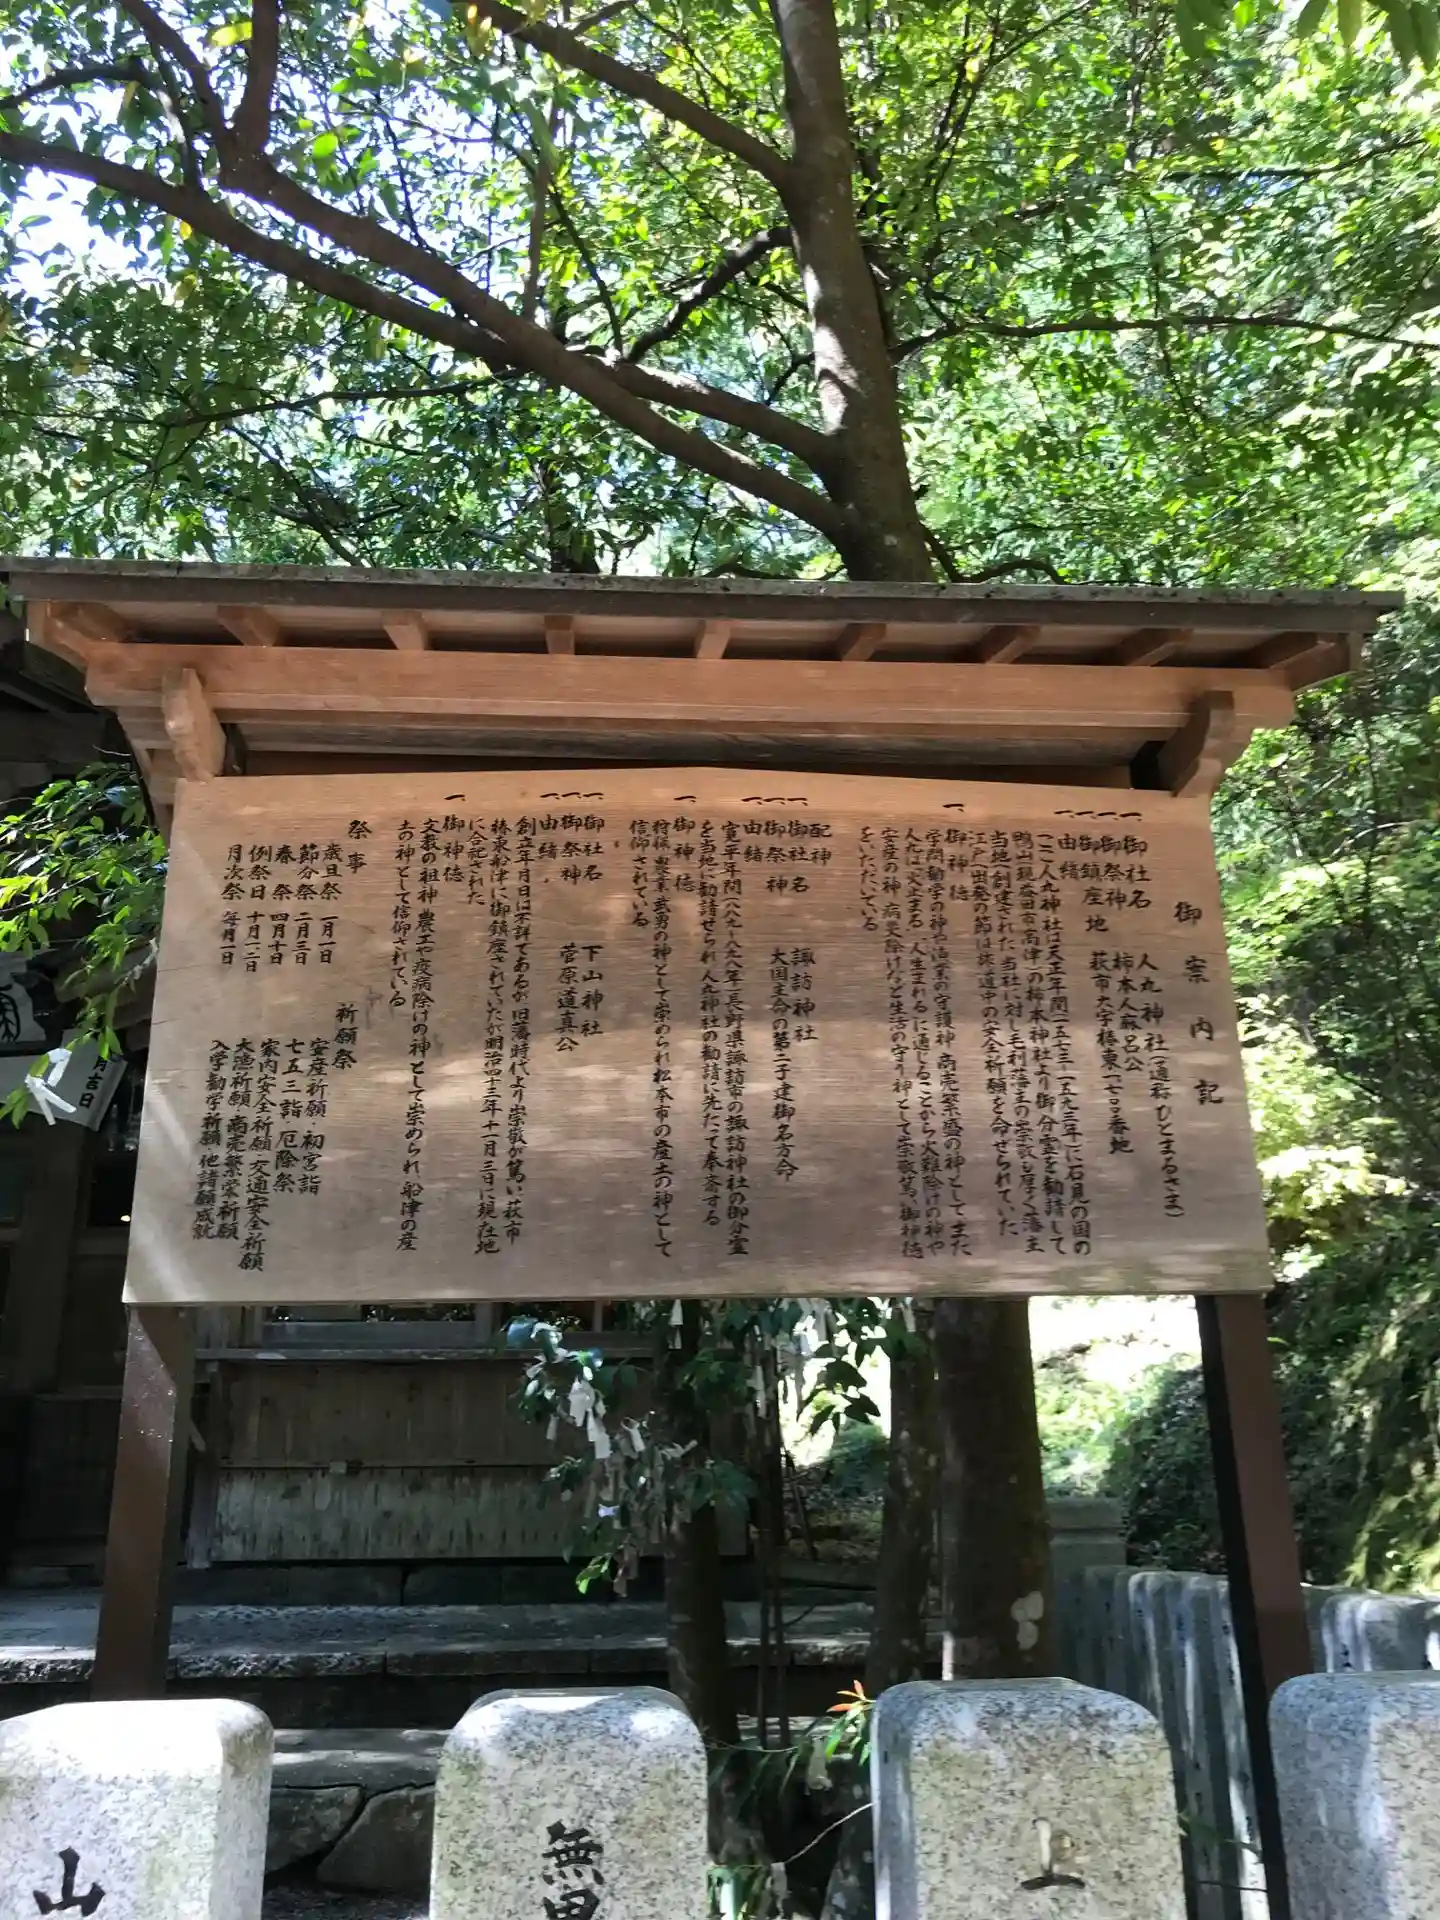 御案内記
一、御社名　人丸神社(通称ひとまるさま)
一、御祭神　柿本人麻呂公
一、御鎮座地　萩市大字椿東一七〇番地
一、由緒
ここ人丸神社は天正年間(一五七三-一五九三年)に石見の国の
鴨山現益田市高津の柿本神社より御分霊を勧請して
当地に創建された当社に対し毛利藩主の崇敬も厚く藩主
江戸出発の節は旅道中の安全祈願を命ぜられていた
一、御神徳
学問勧学の神や漁業の守護神 商売繁盛の神として また
人丸は「火止まる」「人生まれる」に通じることから火難除けの神や
安産の神 病災除けなど生活の守り神として崇敬篤く御神徳
をいただいている
配神
一、御社名　諏訪神社
一、御祭神　大国主命の第二子建御名方命
一、由緒
寛平年間(八八九-八九八年)長野県諏訪市の諏訪神社の御分霊
を当地に勧請せられ人丸神社の勧請に先だて奉斎する
一、御神徳
狩猟 農業 武勇の神として崇められ松本市の産土の神として
信仰されている
一、御社名　下山神社
一、御祭神　菅原道真公
一、由緒
創立年月日は不詳であるが旧藩時代より崇敬が篤い萩市
椿東船津に御鎮座されていたが明治四十三年十一月三日に現在地
に合祀された
一、御神徳
文教の祖神 農工や疫病除けの神として崇められ 船津の産
土の神として信仰されている
祭事
歳旦祭　一月一日
節分祭　二月三日
春祭　四月十日
例祭日　十月一二日
月次祭　毎月一日
祈願祭
安産祈願・初宮詣
七五三詣・厄除祭
家内安全祈願・交通安全祈願
大漁祈願・商売繁栄祈願
入学勧学祈願 他諸願成就
月吉日
山
無田
上